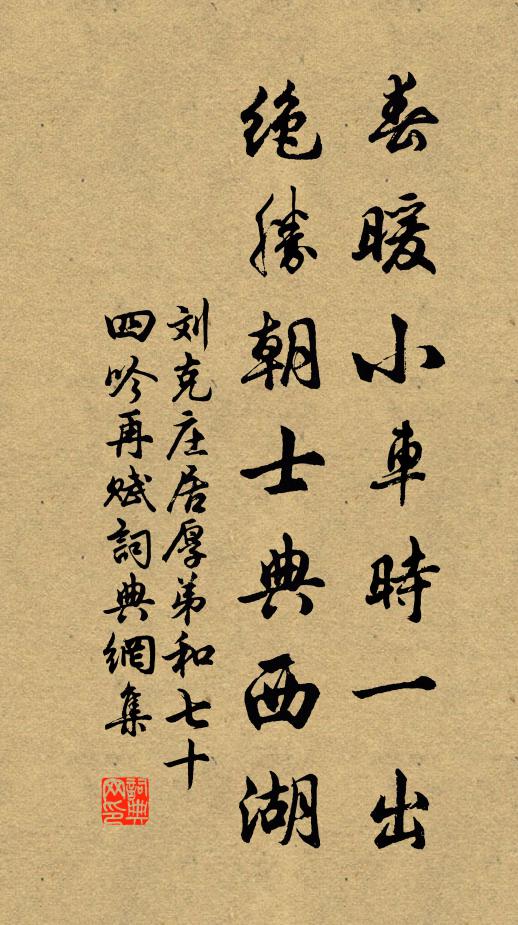 春暖小車時一出
絶勝朝士典西湖
刘克庄居厚弟和七十
四吟再赋詞典網集
詞典
网印